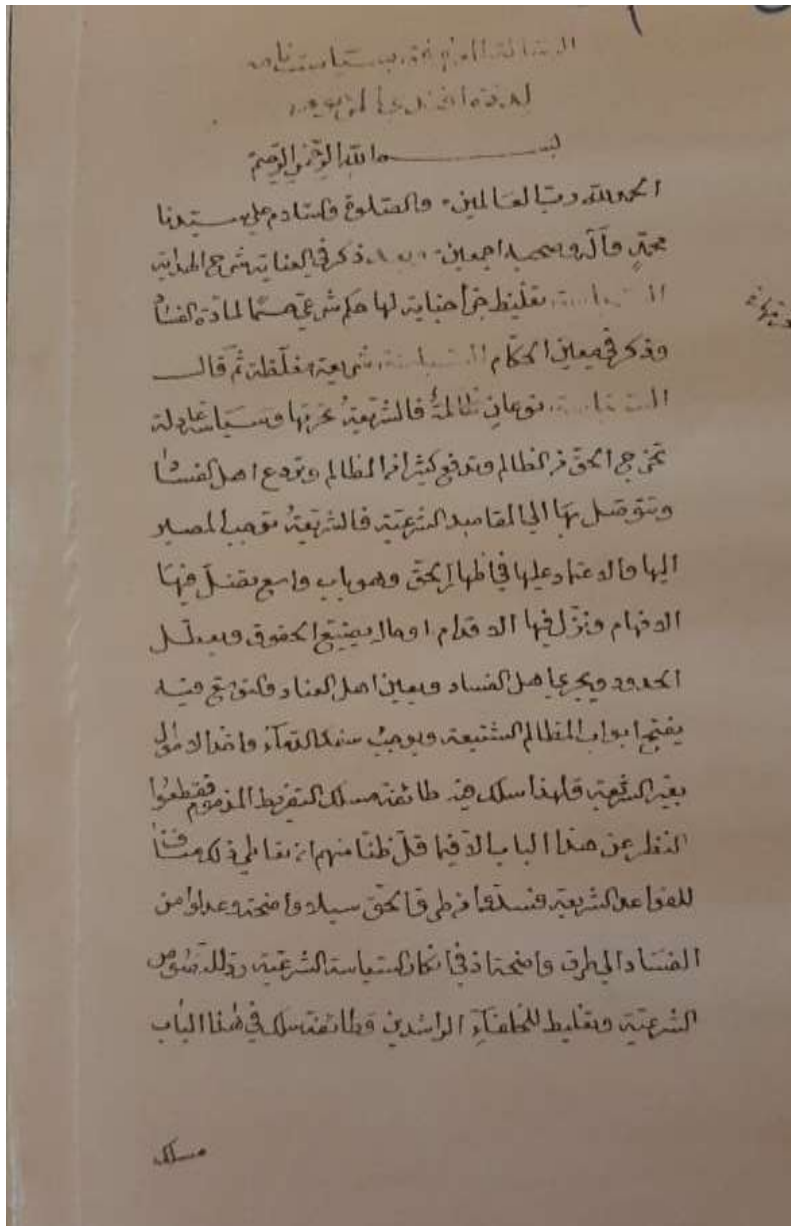 بسم الله الرحمن الرحيم
الحمد لله رب العالمين والصلوة والسلام على سيدنا
محمد وآله وصحبه اجمعين ذكر في العناية شرح الهداية
السياسة تغليظ جناية لها حكم شرعي حسما لمادة الفساد
وذكر في معين الحكام السياسة شريعة مغلظة ثم قال
السياسة نوعان ظالمة فالشريعة تحرمها وسياسة عادلة
تخرج الحق من الظالم وتدفع كثيرا من المظالم وتردع اهل الفساد
وتتوصل بها الى المقاصد الشرعية فالشريعة توجب المصير
اليها والاعتماد عليها في اظهار الحق وهو باب واسع تضل فيها
الافهام وتزل فيها الاقدام اهماله يضيع الحقوق ويعطل
الحدود ويجري اهل الفساد ويعين اهل العناد والتوسع فيه
يفتح ابواب المظالم الشنيعة ويوجب سفك الدماء واخذ الاموال
بغير الشرعية فلهذا سلك فيه طائفة مسلك التفريط المذموم فقطعوا
النظر عن هذا الباب الا فيما قل ظنا منهم ان تعاطي ذلك مناف
للقواعد الشرعية فسدوا من طرق الحق سبلا واضحة وعدلوا من
الفساد الى طرق واضحة اذ في انكار السياسة الشرعية رد للنصوص
الشرعية وتغليط للخلفاء الراشدين وطائفة سلك في هذا الباب
مسلك